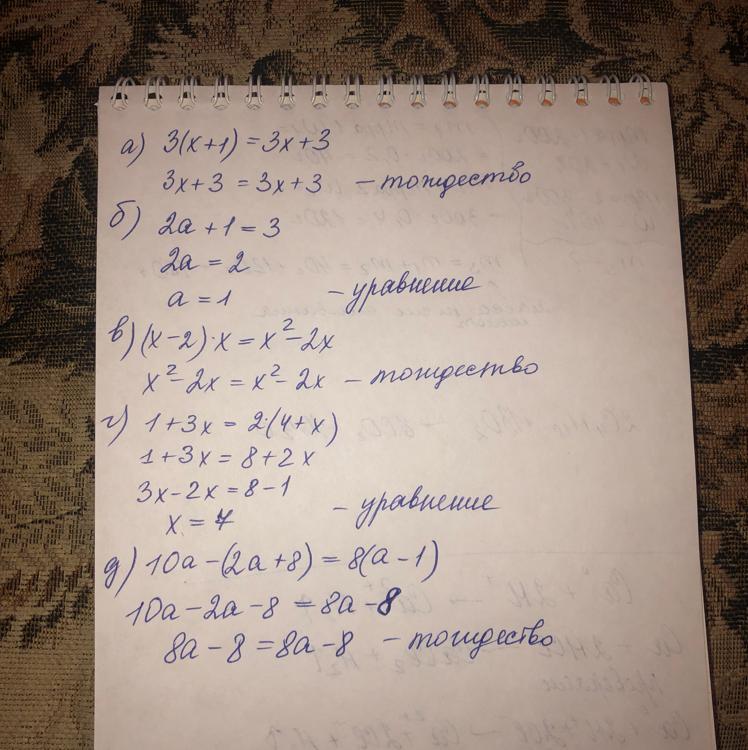 а) 3(x+1) = 3x+3
3x+3 = 3x+3 – тождество
б) 2a+1=3
2a = 2
a = 1 – уравнение
в) (x-2)·x = x²-2x
x²-2x = x²-2x – тождество
г) 1+3x = 2·(4+x)
1+3x = 8+2x
3x-2x = 8-1
x = 7 – уравнение
д) 10a-(2a+8) = 8(a-1)
10a-2a-8 = 8a-8
8a-8 = 8a-8 – тождество